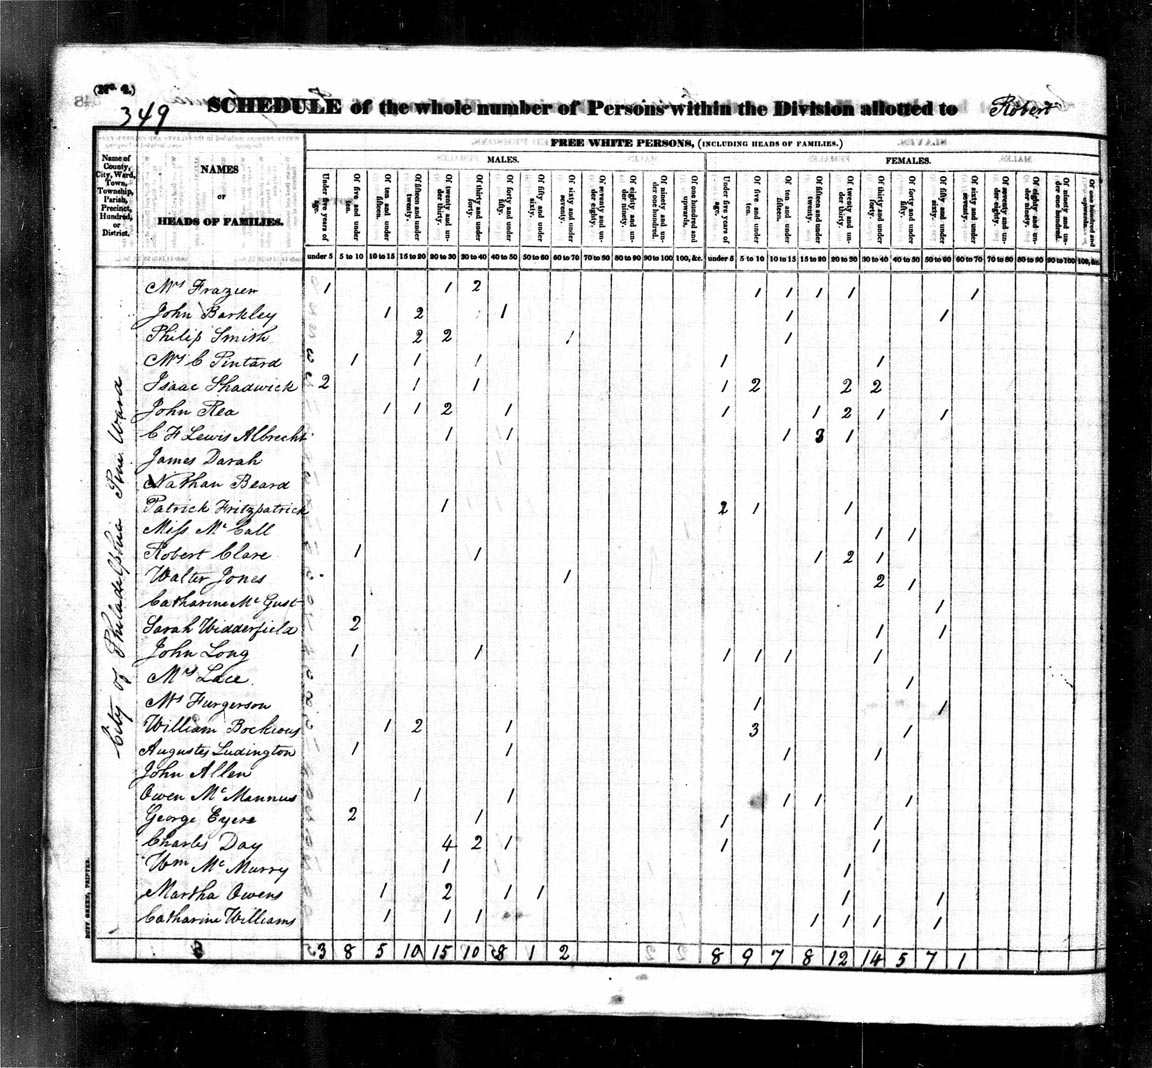 (No. 4.)
349
SCHEDULE of the whole number of Persons within the Division allotted to Robert
FREE WHITE PERSONS, (INCLUDING HEADS OF FAMILIES.)
MALES. FEMALES.
Name of County, City, Ward, Town, Township, Parish, Precinct, Hundred, or District.
NAMES
OR
HEADS OF FAMILIES.
Under five years of age. Of five and under ten. Of ten and under fifteen. Of fifteen and under twenty. Of twenty and under thirty. Of thirty and under forty. Of forty and under fifty. Of fifty and under sixty. Of sixty and under seventy. Of seventy and under eighty. Of eighty and under ninety. Of ninety and under one hundred. Of one hundred and upwards. Under five years of age. Of five and under ten. Of ten and under fifteen. Of fifteen and under twenty. Of twenty and under thirty. Of thirty and under forty. Of forty and under fifty. Of fifty and under sixty. Of sixty and under seventy. Of seventy and under eighty. Of eighty and under ninety. Of ninety and under one hundred. Of one hundred and upwards.
under 5 5 to 10 10 to 15 15 to 20 20 to 30 30 to 40 40 to 50 50 to 60 60 to 70 70 to 80 80 to 90 90 to 100 100, &c. under 5 5 to 10 10 to 15 15 to 20 20 to 30 30 to 40 40 to 50 50 to 60 60 to 70 70 to 80 80 to 90 90 to 100 100, &c.
City of Philadelphia Pine Ward
Mrs Frazier 1 1 2 1 1 1 1 1
John Barkley 1 2 1 1 1
Philip Smith 2 2 1 1
Mrs C Pintard 1 1 1 1 1
Isaac Shadwick 2 1 1 1 2 2 2
John Rea 1 1 2 1 1 1 2 1 1
C F Lewis Albrecht 1 1 1 3 1
James Darah
Nathan Beard
Patrick Fritzpatrick 1 2 1 1
Miss Mc Call 1 1
Robert Clare 1 1 1 2 1
Walter Jones 1 2 1
Catharine Mc Gust 1
Sarah Widderfield 2 1 1
John Long 1 1 1 1 1 1
Mrs Lace 1
Mrs Furgerson 1 1
William Bockious 1 2 1 3 1
Augustes Ludington 1 1 1 1
John Allen
Owen Mc Mannus 1 1 1 1 1
George Eyere 2 1 1 1
Charles Day 4 2 1 1 1
Wm Mc Murry 1 1
Martha Owens 1 2 1 1 1 1
Catharine Williams 1 1 1 1 1 1 1
3 8 5 10 15 10 8 1 2 8 9 7 8 12 14 5 7 1
DUFF GREEN, PRINTER.